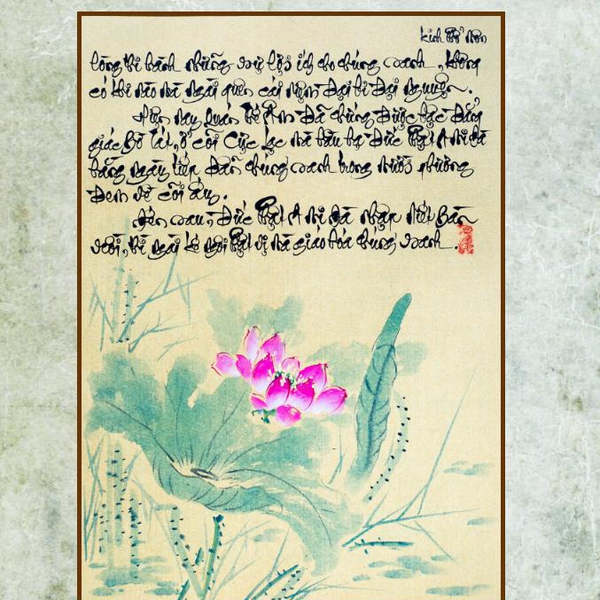 lòng thi hành những sự lợi ích cho chúng sanh, không
có khi nào mà Ngài quên cái niệm Đại bi Đại Nguyện.
Hiện nay Quán Thế Âm Đã chứng Được bậc Đẳng
giác Bồ tát, ở cõi Cực Lạc mà hầu hạ Đức Phật A Mi Đà
hằng ngày tiếp Dẫn chúng sanh trong mười phương
Đem về cõi ấy.
Đến sau, Đức Phật A Mi Đà nhập Niết Bàn
rồi, thì Ngài kế ngôi Phật vị mà giáo hóa chúng sanh.